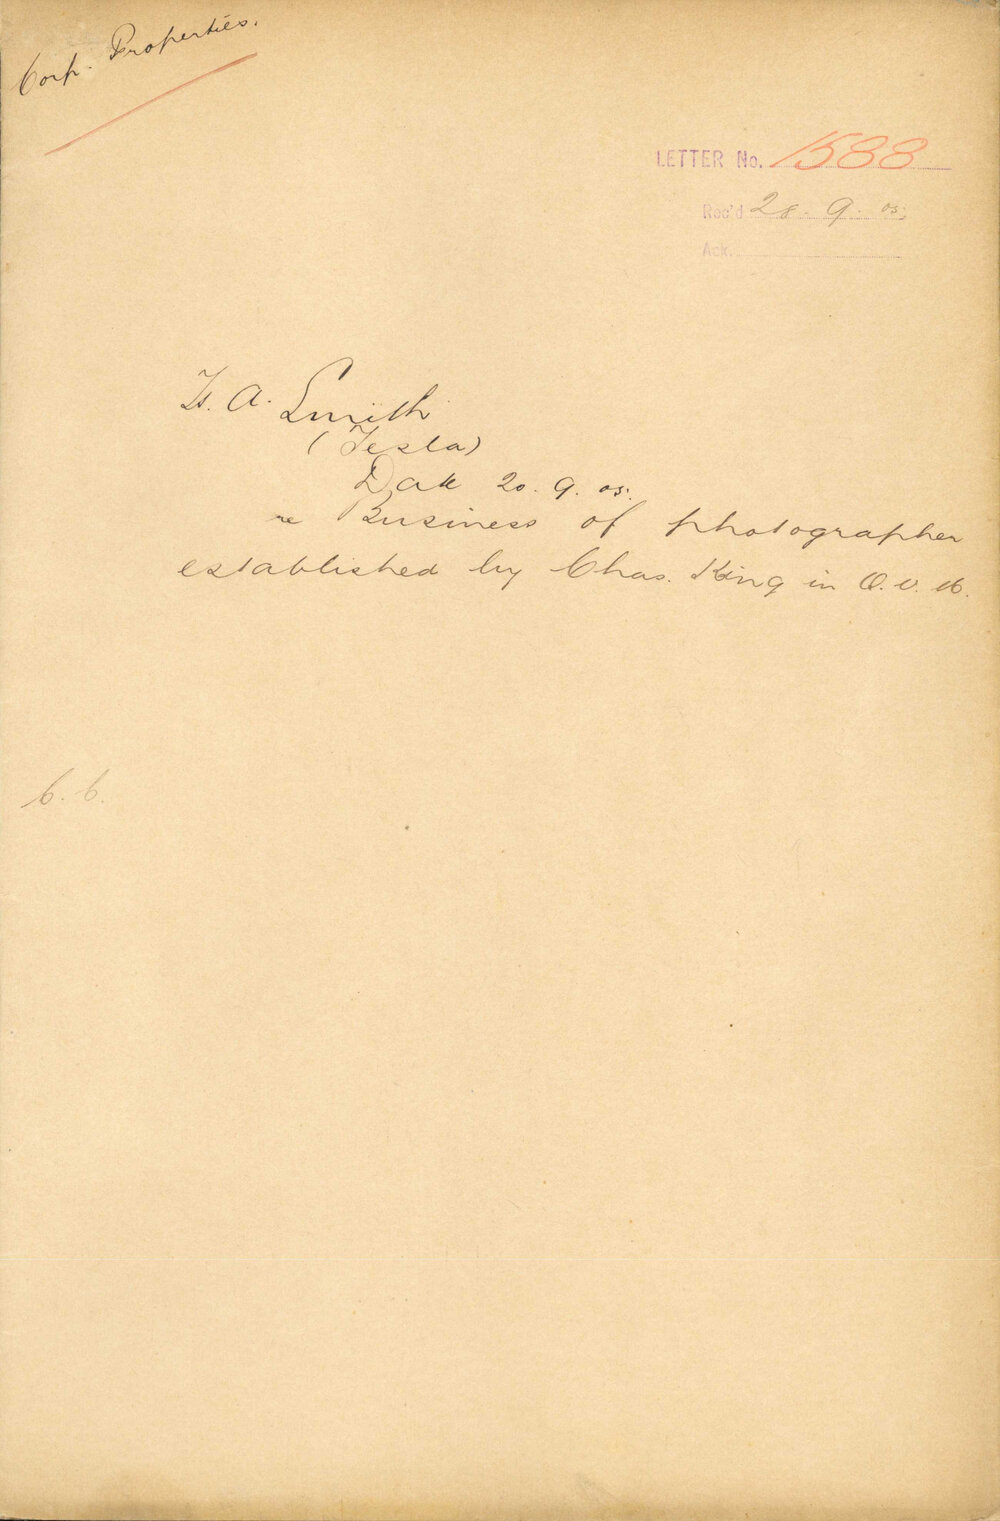 Corp. Properties.
LETTER No. 1588
Rec'd 28. 9. 05.
Ack.
A. Smith
(Tesla)
Date 20. 9. 05.
re Business of photographer
established by Chas. King in Q. V. M.